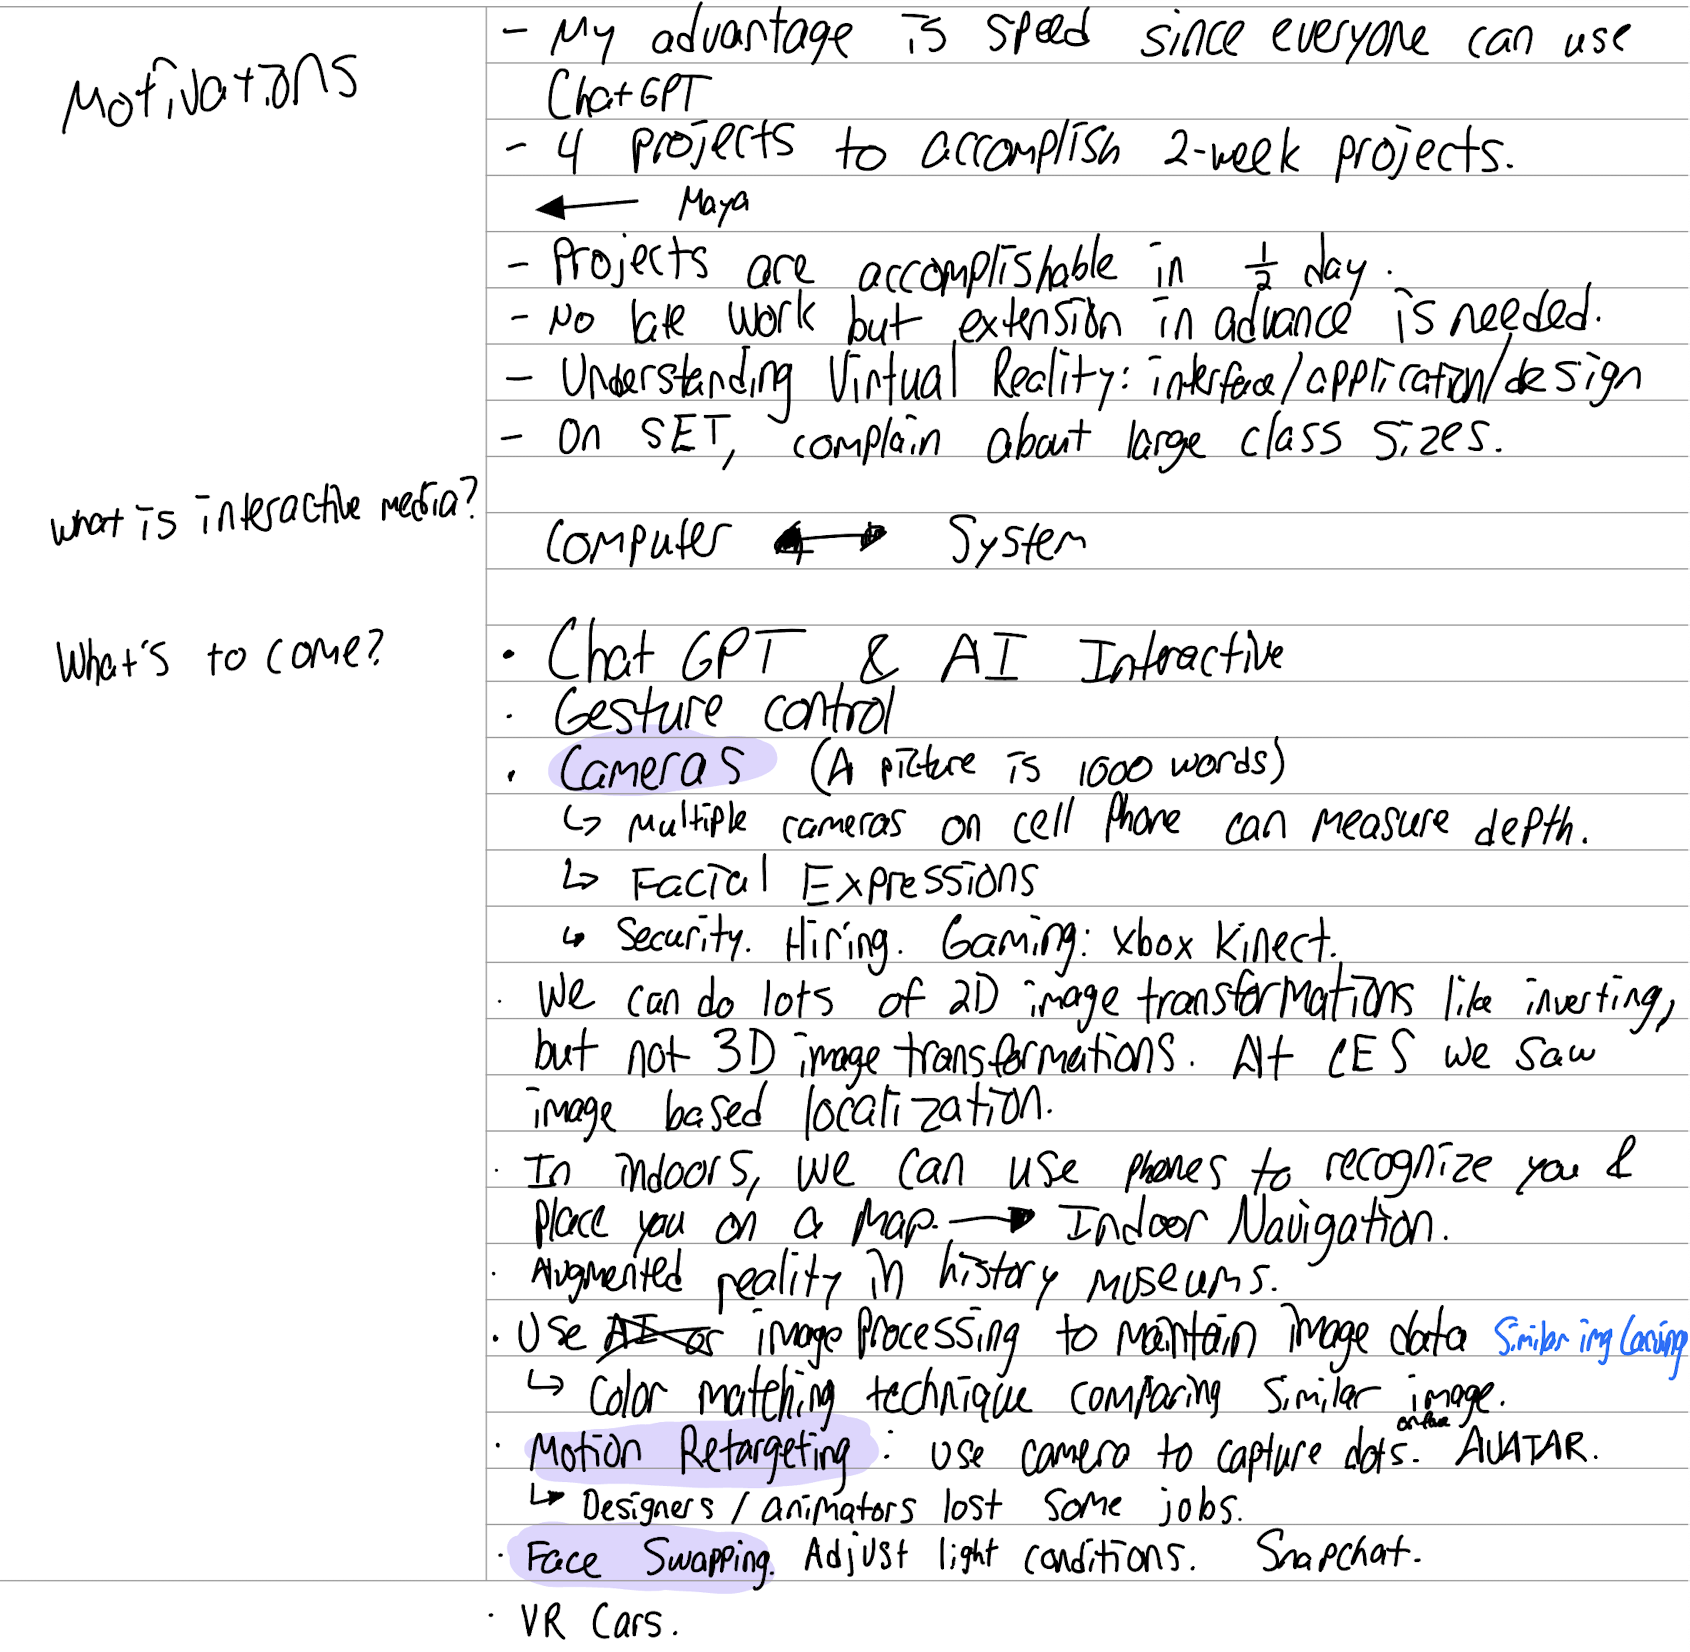 Motivations
- My advantage is speed since everyone can use
ChatGPT
- 4 projects to accomplish 2-week projects.
← Maya
- Projects are accomplishable in 1/2 day.
- No late work but extension in advance is needed.
- Understanding Virtual Reality: interface/application/design
- On SET, complain about large class sizes.
What is interactive media?
Computer ↔ System
What's to come?
• Chat GPT & AI Interactive
· Gesture control
· Cameras (A picture is 1000 words)
↳ Multiple cameras on cell phone can measure depth.
↳ Facial Expressions
↳ Security. Hiring. Gaming: Xbox Kinect.
· We can do lots of 2D image transformations like inverting,
but not 3D image transformations. At CES we saw
image based localization.
· In indoors, we can use phones to recognize you &
place you on a map. → Indoor Navigation.
· Augmented reality in history museums.
· Use AI or image processing to maintain image data Similar img
↳ Color matching technique comparing similar image.
on face
· Motion Retargeting: use camera to capture dots. AVATAR.
↳ Designers / animators lost some jobs.
· Face Swapping. Adjust light conditions. Snapchat.
· VR Cars.